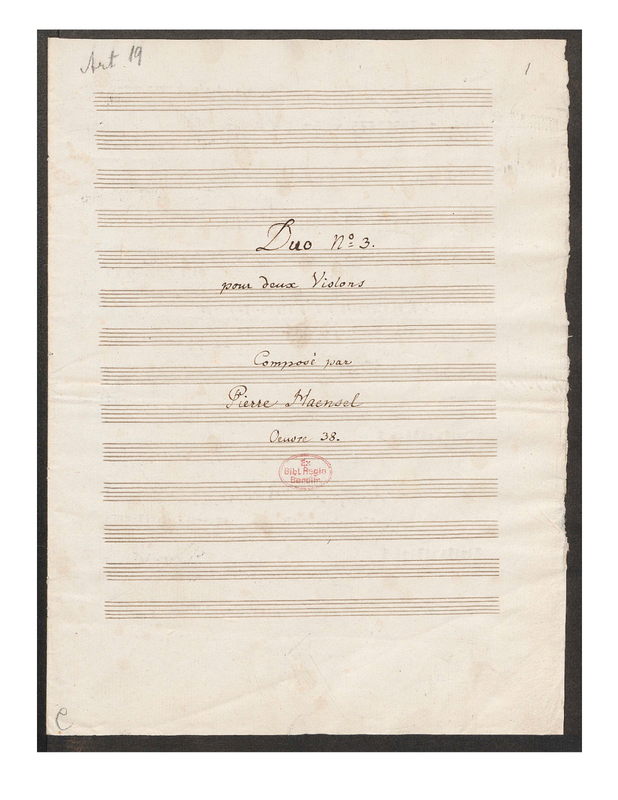 Art 19
1
Duo No 3.
pour deux Violons
Composé par
Pierre Haensel
Oeuvre 38.
Ex
Bibl. Regia
Berolin.
C